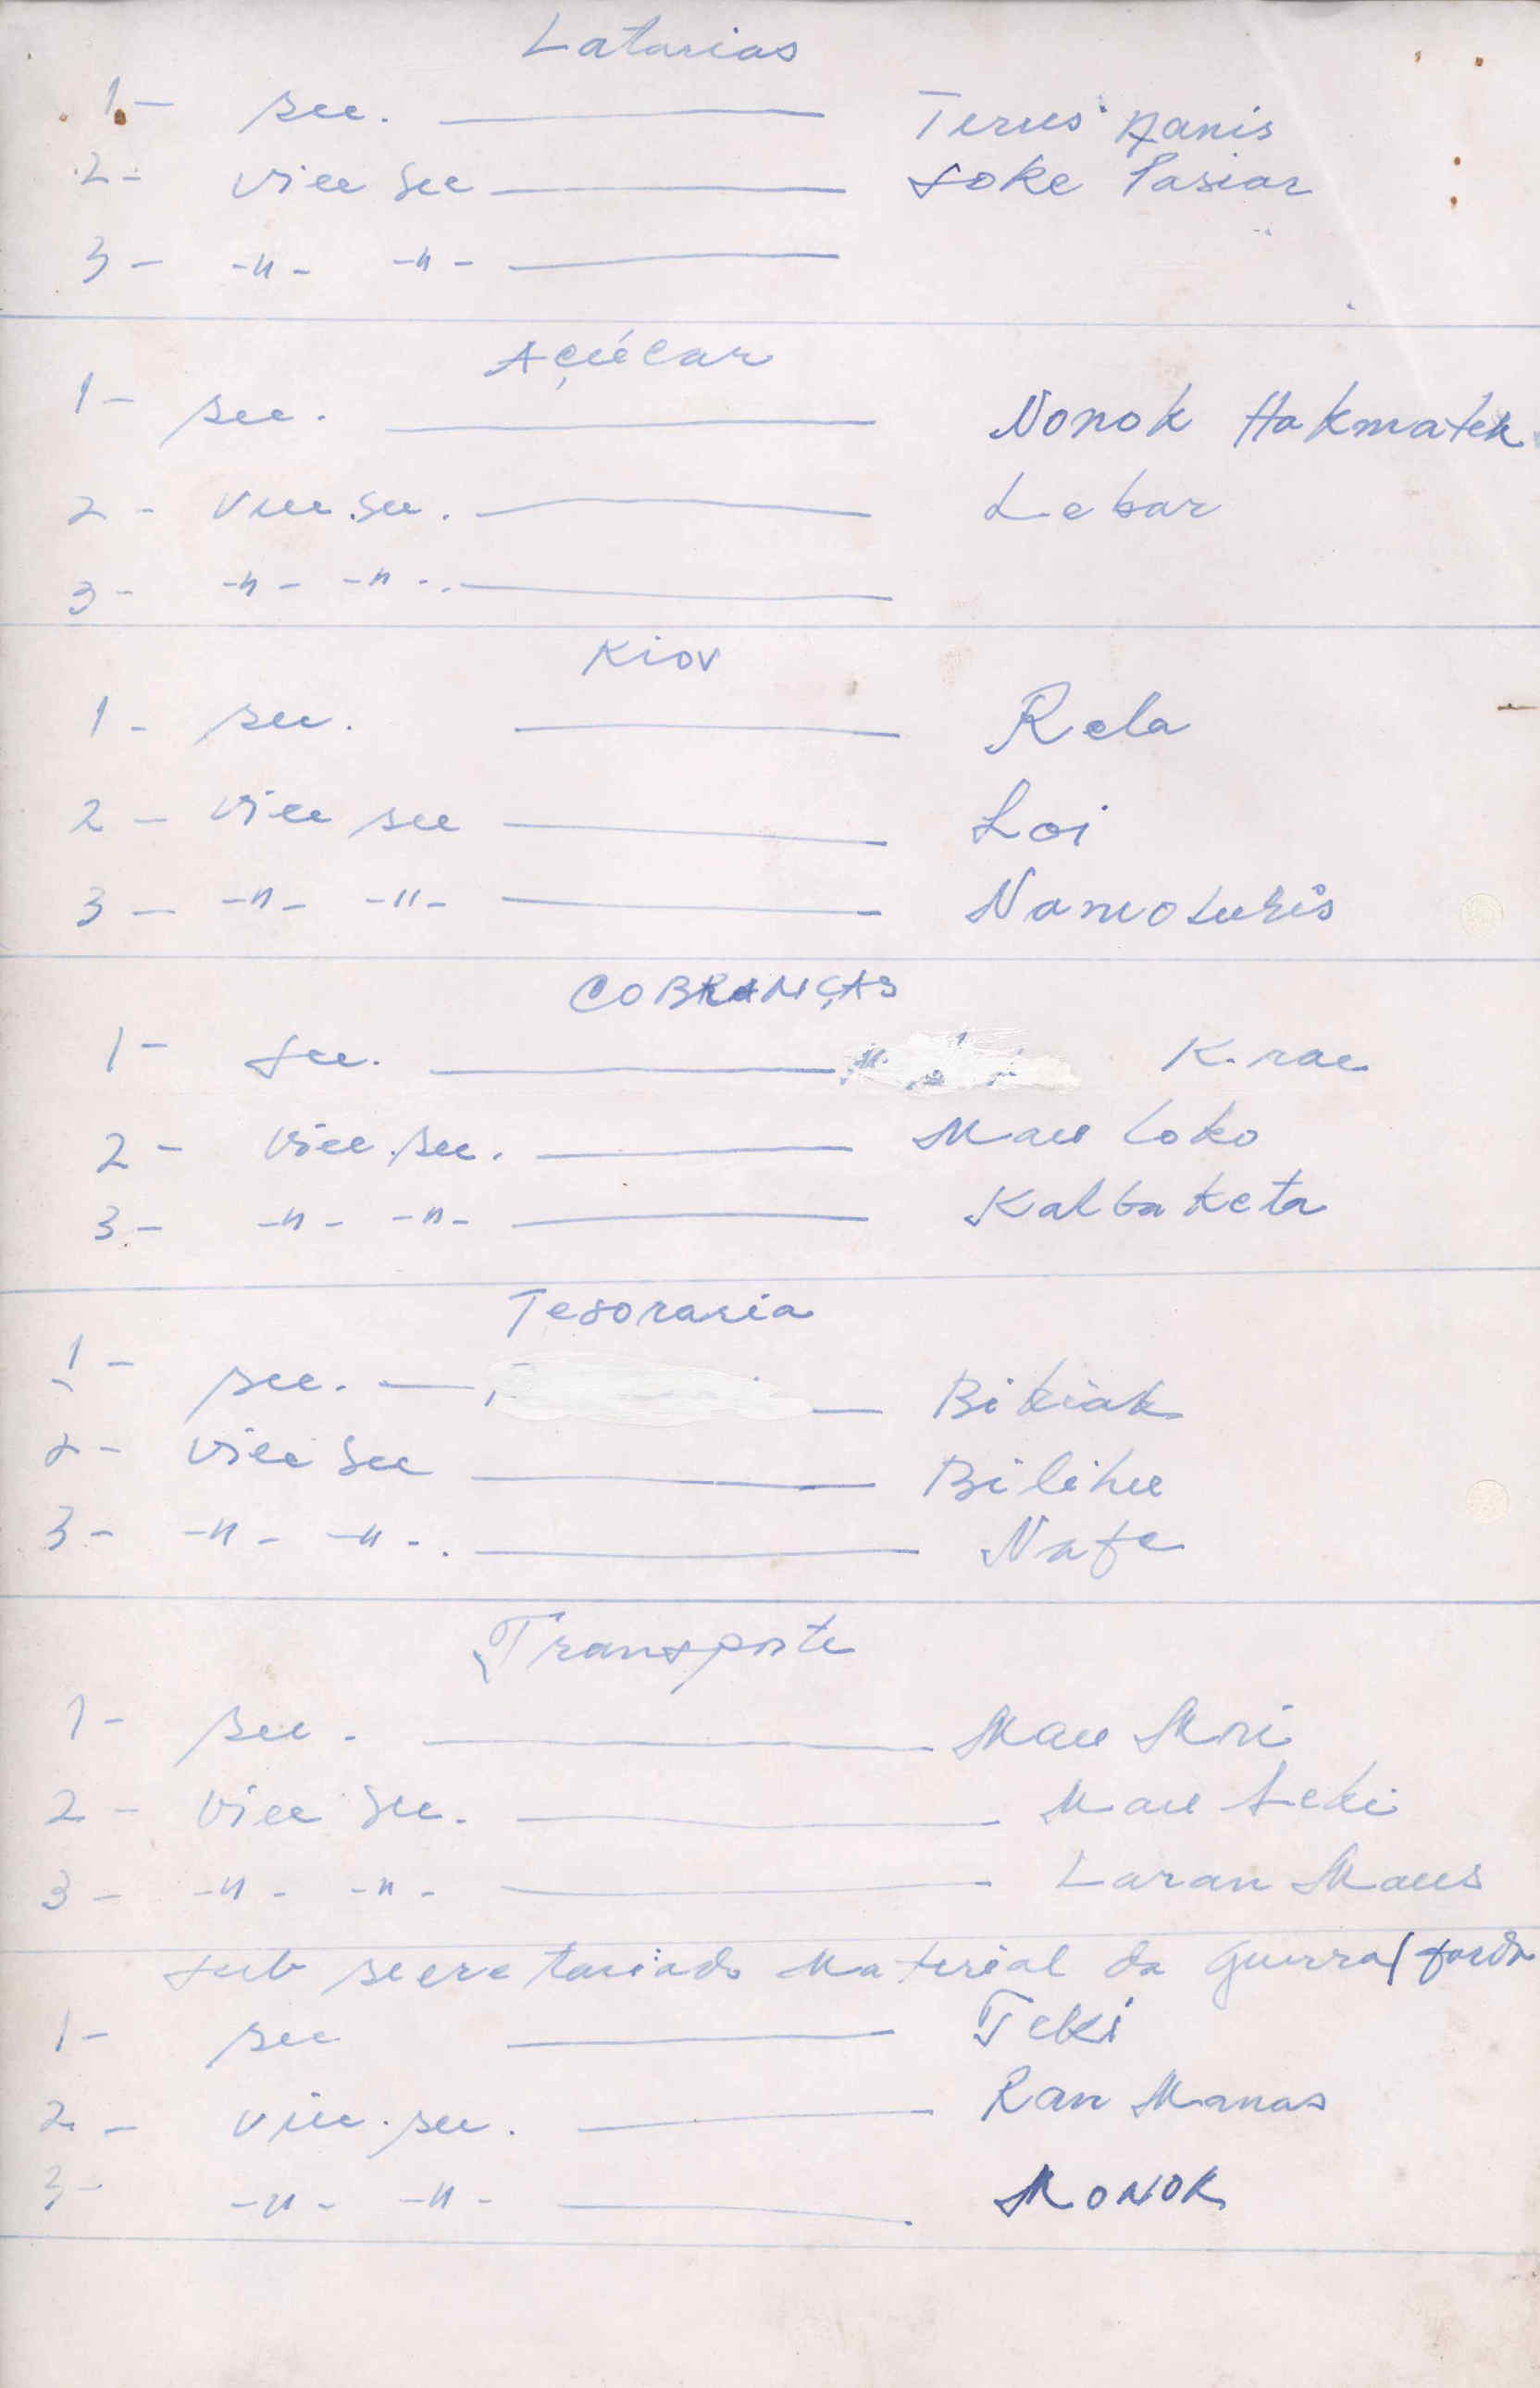 Latarias
1 - sec. ——— Terus Nanis
2 - vice sec ——— Soke Pasiar
3 - -"- -"- ———
Açúcar
1 - sec. ——— Nonok Hakmatek
2 - vice sec. ——— Lebar
3 - -"- -"- ———
Kiov
1 - sec. ——— Rela
2 - vice sec ——— Loi
3 - -"- -"- ———
COBRANÇAS
1 - sec. ——— K. rae
2 - vice sec. ——— Mau Loko
3 - -"- -"- ——— Kalbaketa
Tesoraria
1 - sec. ——— Bikiak
2 - vice sec ——— Bilihu
3 - -"- -"- ——— Nafe
Transporte
1 - sec. ——— Mau Mori
2 - vice sec. ——— Mau Leki
3 - -"- -"- ——— Laran Maus
Sub secretariado Material da guerra/
1 - sec ——— Teki
2 - vice sec. ——— Ran Manas
3 - -"- -"- ——— MONOK